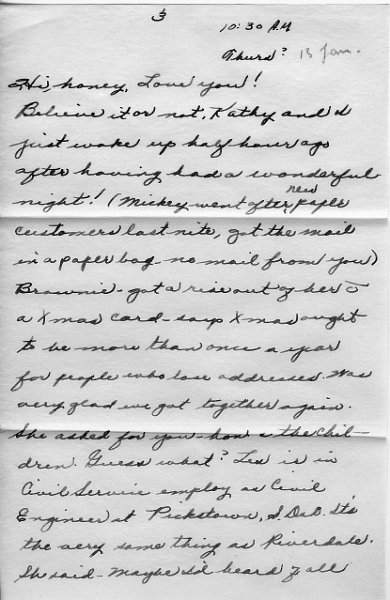 3
10:30 A.M
Thurs? 13 Jan.
Hi honey, Love you!
Believe it or not, Kathy and I
just woke up half hour ago
after having had a wonderful
night! (Mickey went after new paper
customers last nite, got the mail
in a paper bag - no mail from you)
Brownie - got a rise out of her c̄
a Xmas card - says Xmas ought
to be more than once a year
for people who lose addresses. Was
very glad we got together again.
She asked for you - hon & the chil-
dren. Guess what? Les is in
Civil Service employ as Civil
Engineer at Pickstown, S. Dak. It's
the very same thing as Riverdale.
She said - Maybe I'd heard of all